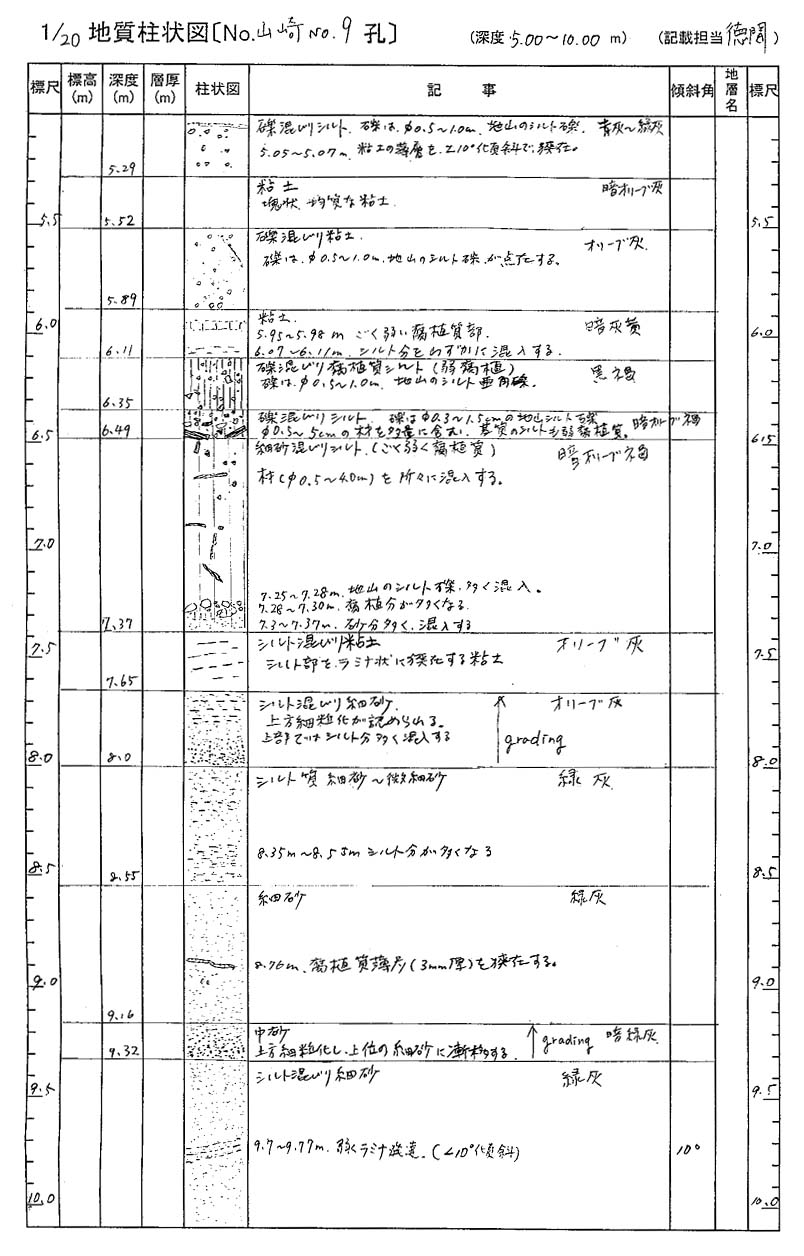 1/20 地質柱状図〔No.山崎No.9孔〕 (深度5.00~10.00m) (記載担当 徳間)
標尺 標高(m) 深度(m) 層厚(m) 柱状図 記事 傾斜角 地層名 標尺
礫混じりシルト. 礫は、φ0.5~1.0m、地山のシルト礫. 青灰~緑灰
5.05~5.07m 粘土の薄層を、∠10°傾斜で、狭在。
5.29
粘土 暗オリーブ灰
塊状、均質な粘土.
5.5 5.52 5.5
礫混じり粘土. オリーブ灰
礫は、φ0.5~1.0m、地山のシルト礫が点在する。
5.89
6.0 粘土. 暗灰黄 6.0
5.95~5.98m ごく弱い腐植質部.
6.11 6.07~6.11m、シルト分をわずかに混入する.
礫混じり腐植質シルト(弱腐植) 黒褐
礫は、φ0.5~1.0m、地山のシルト亜角礫.
6.35
礫混じりシルト. 礫はφ0.3~1.5cmの地山シルト礫 暗オリーブ褐
6.5 6.49 φ0.5~5cmの材を多量に含む、基質のシルトも弱腐植質。 6.5
細砂混じりシルト.(ごく弱く腐植質) 暗オリーブ褐
材(φ0.5~4.0m)を所々に混入する。
7.0 7.0
7.25~7.28m、地山のシルト礫、多く混入。
7.28~7.30m、腐植分が多くなる
7.37 7.3~7.37m、砂分多く、混入する
7.5 シルト混じり粘土 オリーブ灰 7.5
シルト部をラミナ状に狭在する粘土
7.65
シルト混じり細砂. オリーブ灰
上方細粒化が認められる。
上部ではシルト分多く混入する grading
8.0 8.0 8.0
シルト質細砂~微細砂 緑灰
8.35m~8.55m シルト分が多くなる
8.5 8.55 8.5
細砂 緑灰
8.76m、腐植質薄片(3mm厚)を狭在する。
9.0 9.0
9.16
中砂 grading 暗緑灰
9.32 上方細粒化し、上位の細砂に漸移する.
9.5 シルト混じり細砂 緑灰 9.5
9.7~9.77m、弱くラミナ発達.(∠10°傾斜) 10°
10.0 10.0